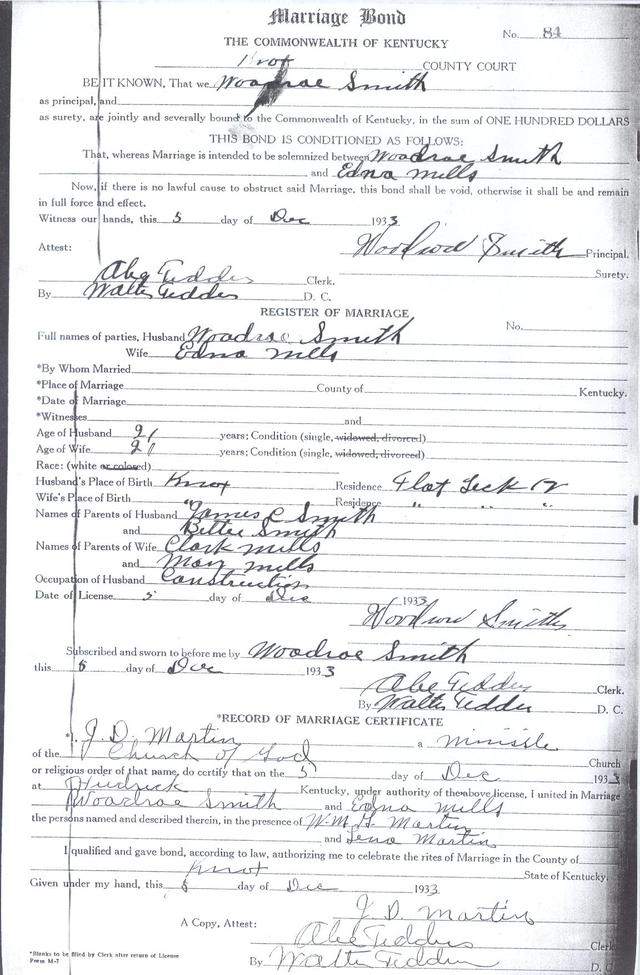 Marriage Bond
No. 84
THE COMMONWEALTH OF KENTUCKY
Knox COUNTY COURT
BE IT KNOWN, That we Woodroe Smith
as principal, and
as surety, are jointly and severally bound to the Commonwealth of Kentucky, in the sum of ONE HUNDRED DOLLARS
THIS BOND IS CONDITIONED AS FOLLOWS:
That, whereas Marriage is intended to be solemnized between Woodroe Smith
and Edna Mills
Now, if there is no lawful cause to obstruct said Marriage, this bond shall be void, otherwise it shall be and remain
in full force and effect.
Witness our hands, this 5 day of Dec 1933
Woodrow Smith Principal.
Attest:
Surety.
Abe Tedders Clerk.
By Walter Tedders D. C.
REGISTER OF MARRIAGE
No.
Full names of parties, Husband Woodroe Smith
Wife Edna Mills
*By Whom Married
*Place of Marriage County of Kentucky.
*Date of Marriage
*Witnesses and
Age of Husband 21 years; Condition (single, widowed, divorced)
Age of Wife 21 years; Condition (single, widowed, divorced)
Race: (white or colored)
Husband's Place of Birth Knox Residence Flat Lick Ky
Wife's Place of Birth " Residence " " "
Names of Parents of Husband James C Smith
and Bettie Smith
Names of Parents of Wife Clark Mills
and May Mills
Occupation of Husband Construction
Date of License 5 day of Dec 1933
Woodrow Smith
Subscribed and sworn to before me by Woodroe Smith
this 5 day of Dec 1933
Abe Tedders Clerk.
By Walter Tedder D. C.
*RECORD OF MARRIAGE CERTIFICATE
*I, J. D. Martin a Ministe
of the Church of God Church
or religious order of that name, do certify that on the 5 day of Dec 1933
at Kentucky, under authority of the above license, I united in Marriage
Woodroe Smith and Edna Mills
the persons named and described therein, in the presence of W. M. G. Martin
and Lena Martin
I qualified and gave bond, according to law, authorizing me to celebrate the rites of Marriage in the County of
Knox State of Kentucky.
Given under my hand, this 5 day of Dec 1933
J. D. Martin
A Copy, Attest: Abe Tedders Clerk
By Walter Tedders D. C
*Blanks to be filled by Clerk after return of License
Form M-7